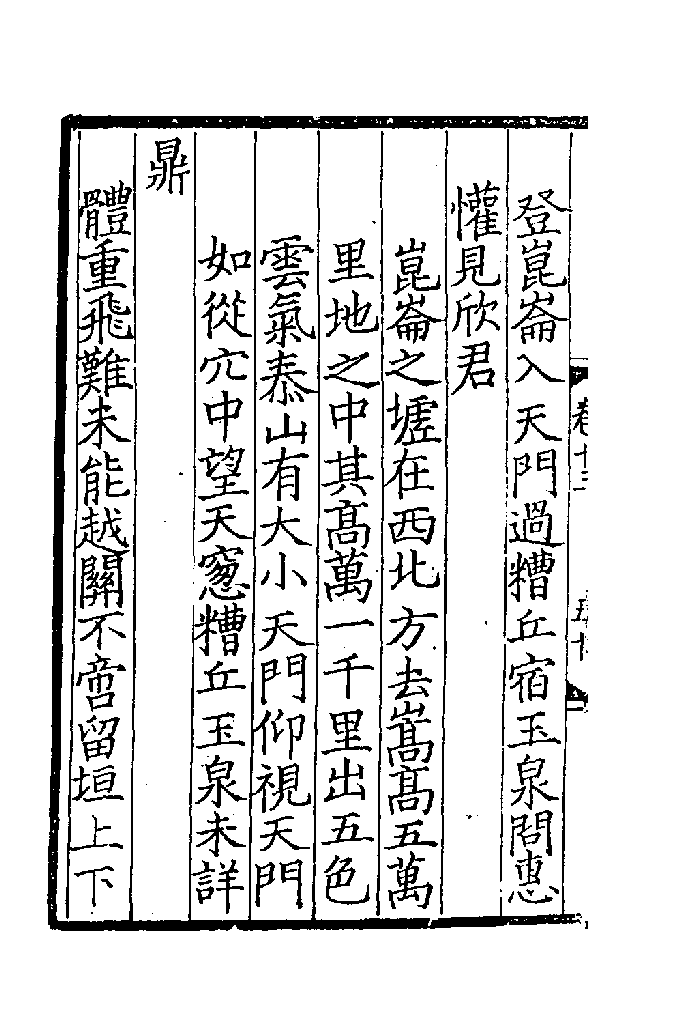 登崑崙入天門過糟丘宿玉泉問惠
懽見欣君
崑崙之墟在西北方去嵩高五萬
里地之中其高萬一千里出五色
雲氣泰山有大小天門仰視天門
如從穴中望天窻糟丘玉泉未詳
鼎
體重飛難未能越關不啻留垣上下